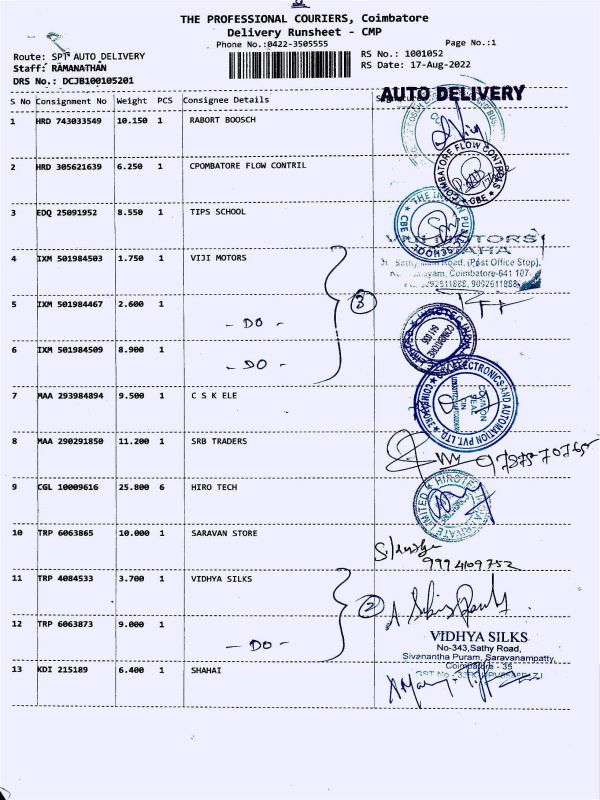 THE PROFESSIONAL COURIERS, Coimbatore
Delivery Runsheet - CMP
Phone No.:0422-3505555 Page No.:1
Route: SPT AUTO DELIVERY RS No.: 1001052
Staff: RAMANATHAN RS Date: 17-Aug-2022
DRS No.: DCJB100105201
AUTO DELIVERY
S No Consignment No Weight PCS Consignee Details
1 HRD 743033549 10.150 1 RABORT BOOSCH
2 HRD 305621639 6.250 1 CPOMBATORE FLOW CONTRIL
COMBATORE FLOW CONTROLS ★ CBE ★
3 EDQ 25091952 8.550 1 TIPS SCHOOL
★ THE INDIAN PUBLIC SCHOOL ★ CBE
4 IXM 501984503 1.750 1 VIJI MOTORS
MOTORS
Road, (Post Office Stop),
Coimbatore-641 107.
9092511888
3
5 IXM 501984467 2.600 1
- DO -
6 IXM 501984509 8.900 1
- DO -
COIMBATORE
641 035
7 MAA 293984894 9.500 1 C S K ELE
ELECTRONICS AND AUTOMATION PVT. LTD.
COMMON
SEAL
8 MAA 290291850 11.200 1 SRB TRADERS
9 CGL 10009616 25.800 6 HIRO TECH
HIROTEC INDIA PRIVATE LIMITED
10 TRP 6063865 10.000 1 SARAVAN STORE
9994109752
11 TRP 4084533 3.700 1 VIDHYA SILKS
2
12 TRP 6063873 9.000 1
- DO -
VIDHYA SILKS
No-343,Sathy Road,
Sivanantha Puram, Saravanampatty,
Coimbatore - 35
GST No
13 KDI 215189 6.400 1 SHAHAI